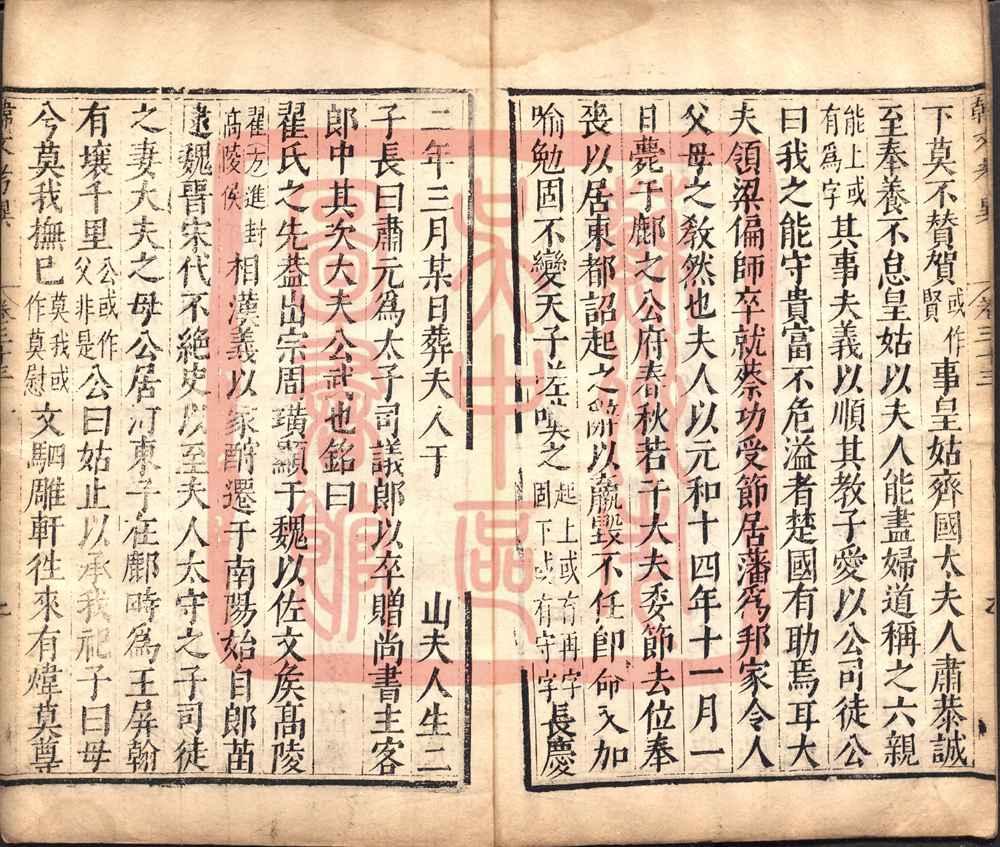 下莫不贊賀或作賢事皇姑齊國大夫人肅恭誠
至奉養不怠皇姑以夫人能盡婦道稱之六親
能上或有爲字其事夫義以順其教子愛以公司徒公
曰我之能守貴富不危溢者楚國有助焉耳大
夫領梁偏師卒就蔡功受節居藩爲邦家令人
父母之敎然也夫人以元和十四年十一月一
日薨于鄜之公府春秋若干大夫委節去位奉
喪以居東都詔起之辭以羸毀不任卽命又加
喻勉固不變天子嗟嘆之起上或有再字固下或有守字長慶
二年三月某日葬夫人于 山夫人生二
子長曰肅元爲太子司議郎以卒贈尚書主客
郎中其次大夫公武也銘曰
翟氏之先葢出宗周璜顯于魏以佐文矦高陵
翟方進封高陵侯相漢義以家酧遷于南陽始自郎苗
逮魏晉宋代不絕史以至夫人太守之子司徒
之妻大夫之母公居河東子在鄜時爲王屏翰
有壤千里公或作父非是公曰姑止以承我祀子曰母
今莫我撫已莫我或作莫慰文駟雕軒徃來有煒莫尊
卷三十三
吳中區
圖書館